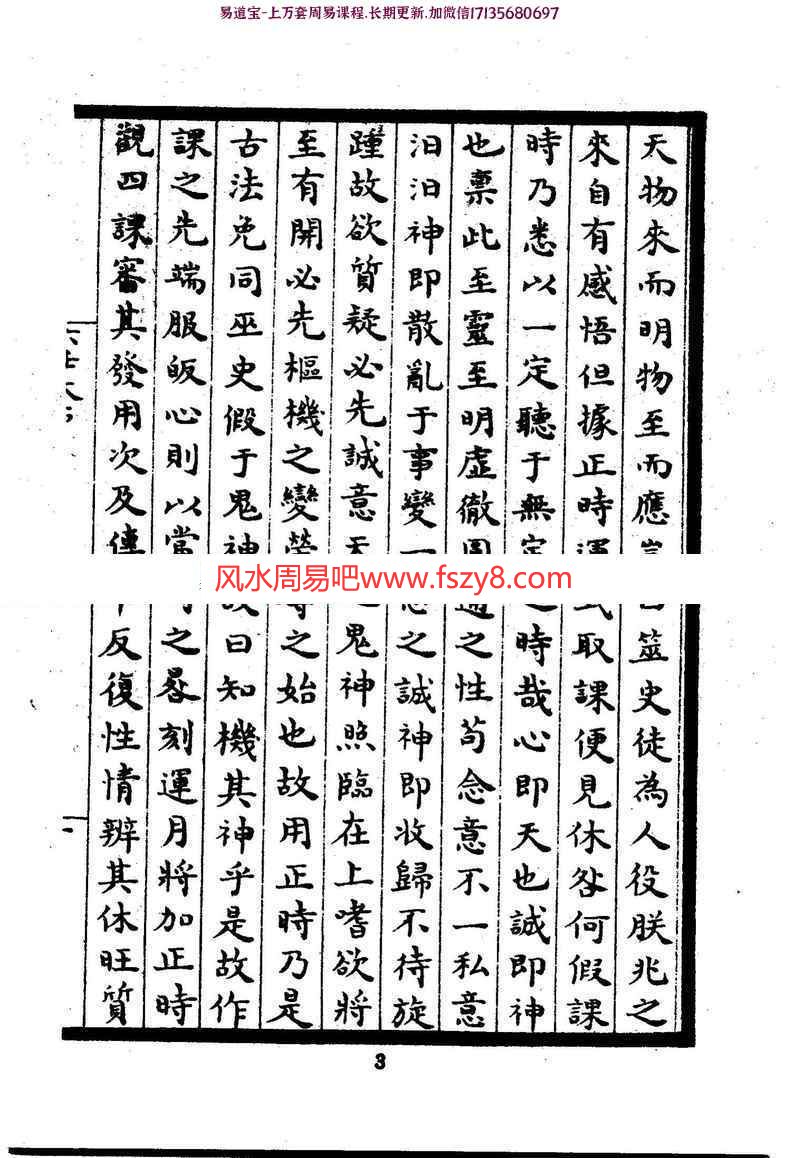 易道宝-上万套周易课程.长期更新.加微信17135680697
天物來而明物至而應筮史徒為人役朕兆之
來自有感悟但據正時運取課便見休咎何假課
時乃悉以一定聽于無定時哉心即天也誠即神
也稟此至靈至明虛徹之性苟念意不一私意
汨汨神即散亂于事變一之誠神即收歸不待旋
踵故欲質疑必先誠意天鬼神照臨在上嗜欲將
至有開必先樞機之變榮之始也故用正時乃是
古法免同巫史假于鬼神曰知機其神乎是故作
課之先端服皈心則以當之晷刻運月將加正時
觀四課審其發用次及傳反復性情辨其休旺質
风水周易吧www.fszy8.com
3